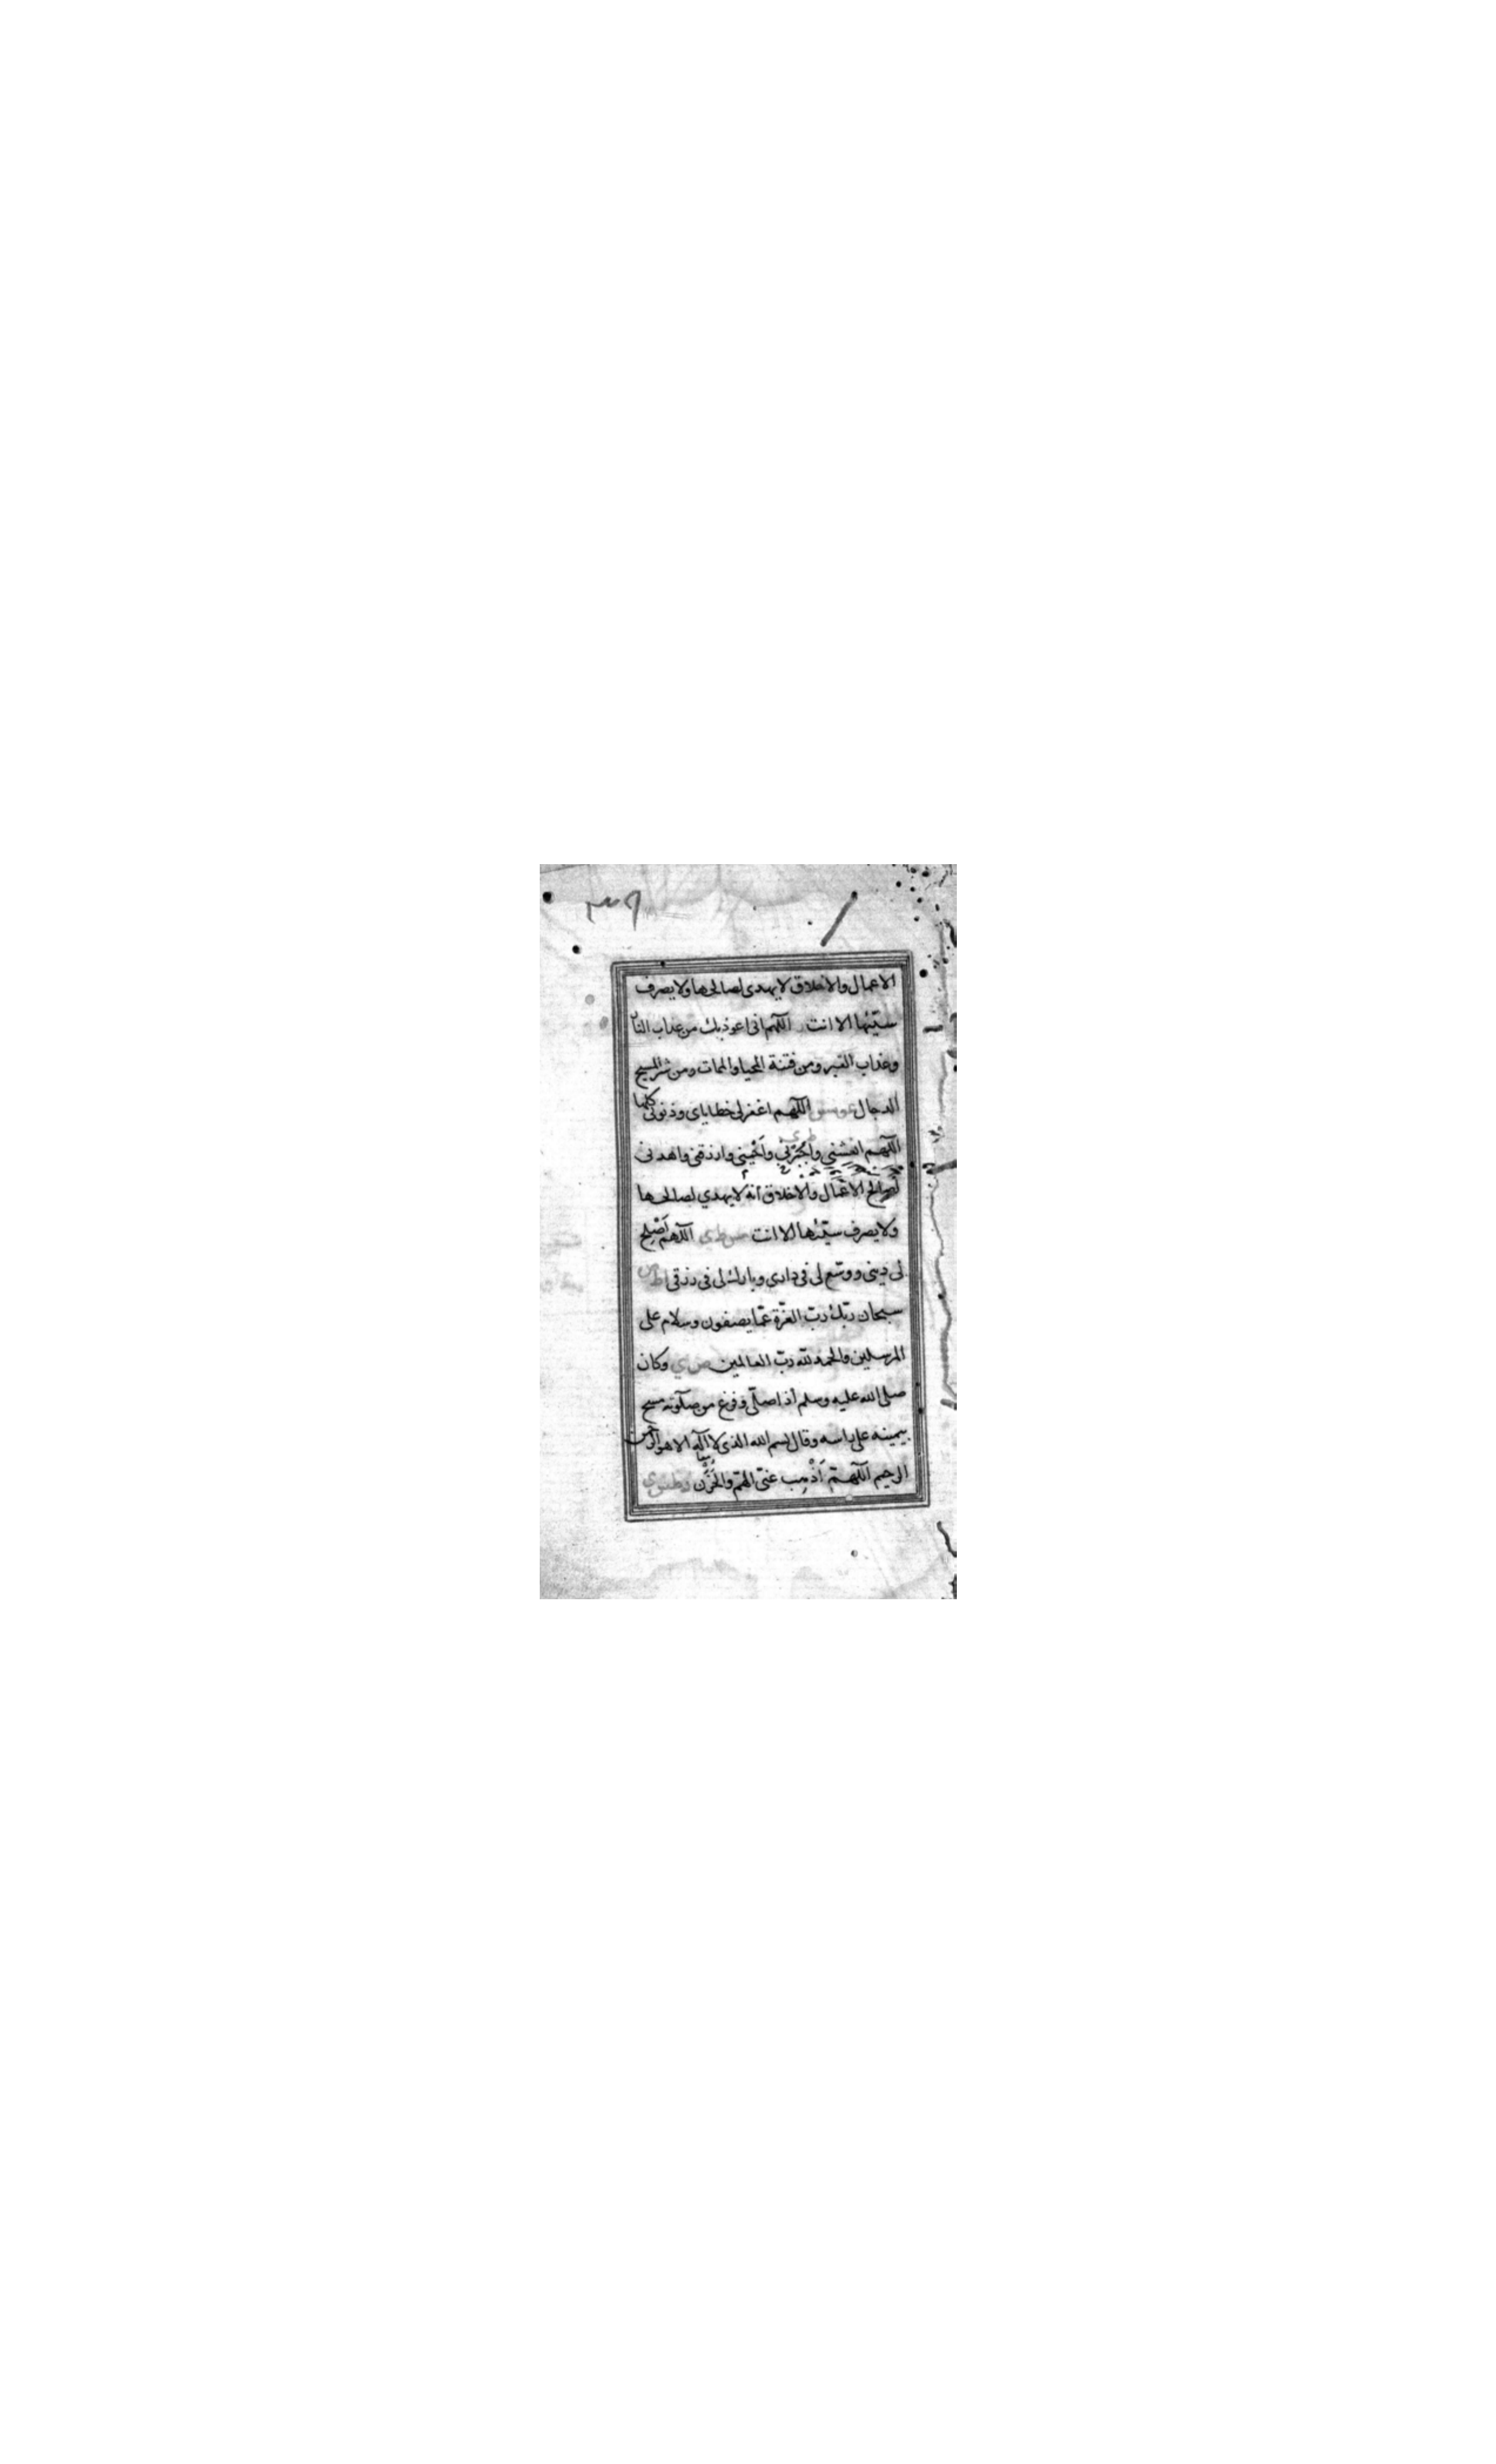 الاعمال والاخلاق لا يهدى لصالحها ولا يصرف
سيّئها الا انت اللهم انى اعوذ بك من عذاب النار
وعذاب القبر ومن فتنة المحيا والممات ومن شر المسيح
الدجال اللّهم اغفر لى خطاياى وذنوبى كلها
اللّهم انعشنى واجْبُرْنِي واَحْيِنى وارزقنى واهدنى
لصالح الاعمال والاخلاق انه لا يهدي لصالحها
ولا يصرف سيّئها الا انت اللّهم اَصْلِح
لى دينى ووسّع لى فى داري وبارك لى فى رزقى
سبحان ربّك ربّ العزّة عمّا يصفون وسلام على
المرسلين والحمد لله ربّ العالمين وكان
صلى الله عليه وسلم اذا صلّى وفرغ من صلوته مسح
بيمينه على راسه وقال بسم الله الذى لا اله الا هو الرحمن
الرحيم اللّهمّ اَذْهِب عنّى الهمّ والحُزْن